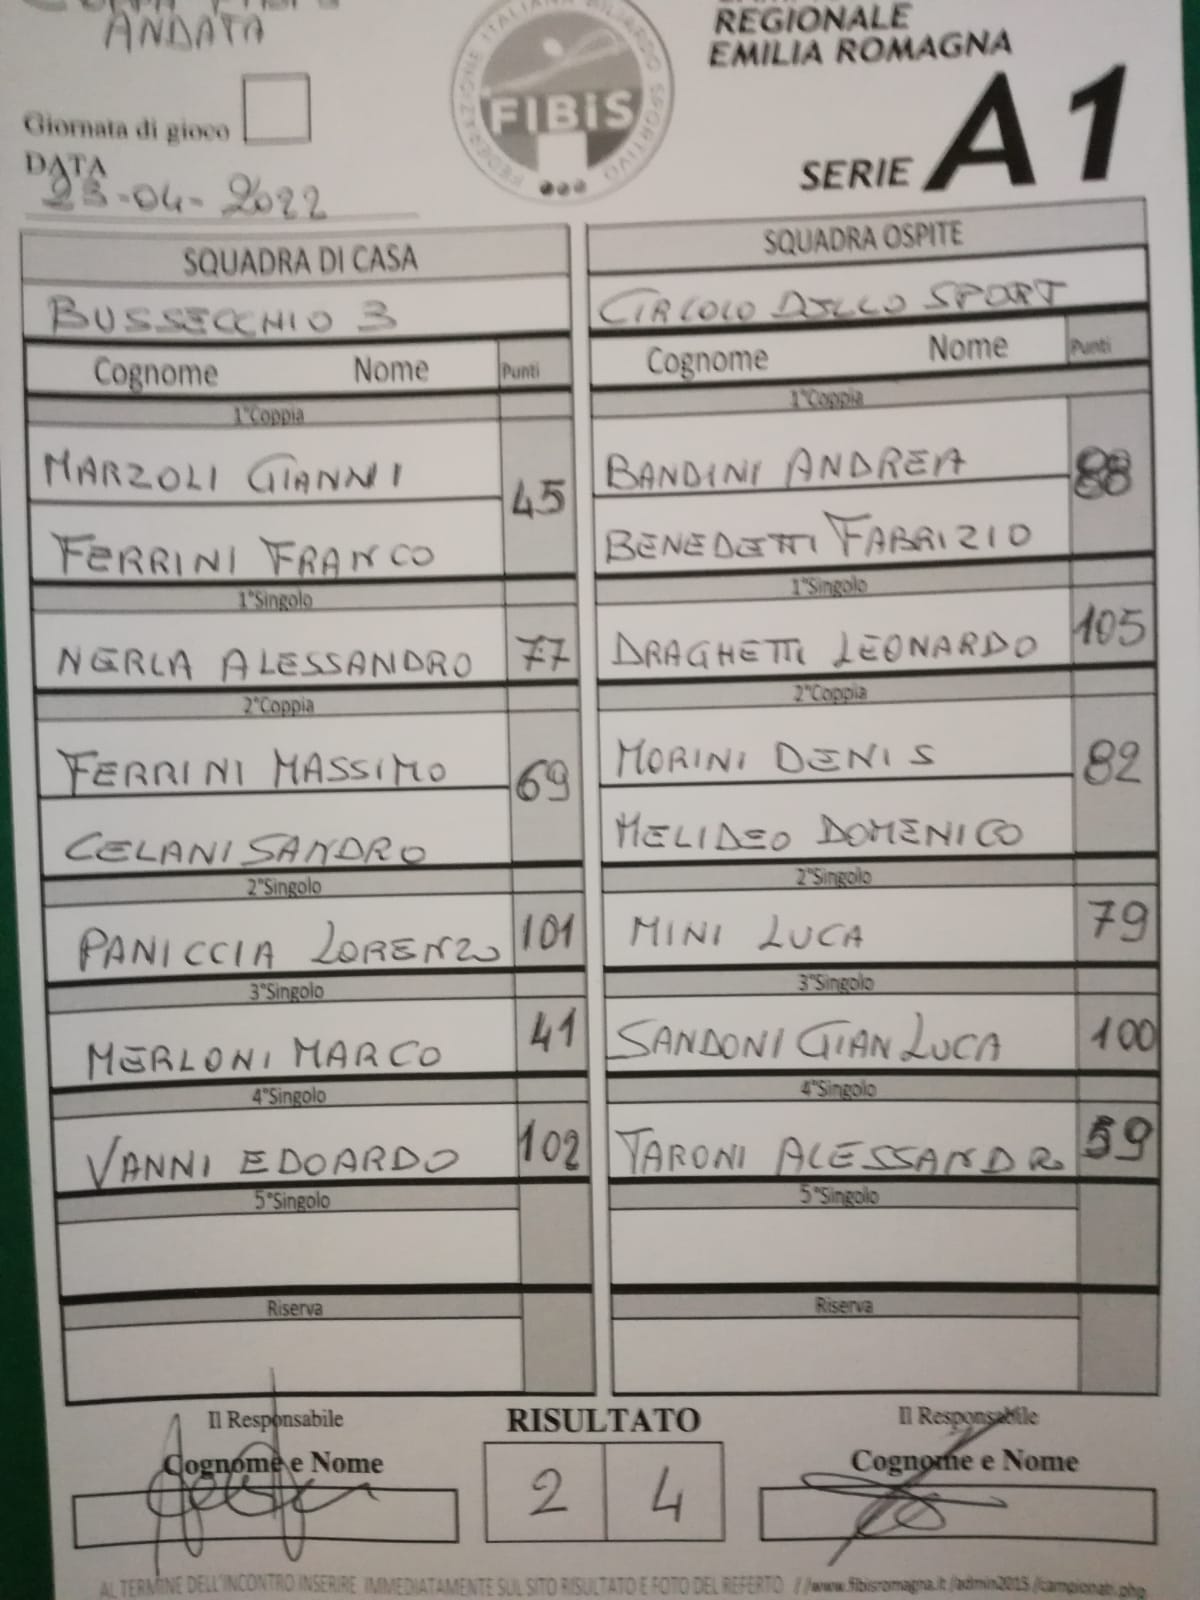 ANDATA
Giornata di gioco
DATA
23-04-2022
FEDERAZIONE ITALIANA BILIARDO SPORTIVO
FIBiS
REGIONALE
EMILIA ROMAGNA
SERIE A1
SQUADRA DI CASA
BUSSECCHIO 3
Cognome Nome Punti
1°Coppia
MARZOLI GIANNI
45
FERRINI FRANCO
1°Singolo
NERLA ALESSANDRO 77
2°Coppia
FERRINI MASSIMO
69
CELANI SANDRO
2°Singolo
PANICCIA LORENZO 101
3°Singolo
MERLONI MARCO 41
4°Singolo
VANNI EDOARDO 102
5°Singolo
Riserva
SQUADRA OSPITE
CIRCOLO DELLO SPORT
Cognome Nome Punti
1°Coppia
BANDINI ANDREA
88
BENEDETTI FABRIZIO
1°Singolo
DRAGHETTI LEONARDO 105
2°Coppia
MORINI DENIS
82
MELIDEO DOMENICO
2°Singolo
MINI LUCA 79
3°Singolo
SANDONI GIAN LUCA 100
4°Singolo
TARONI ALESSANDRO 59
5°Singolo
Riserva
Il Responsabile
Cognome e Nome
RISULTATO
2 4
Il Responsabile
Cognome e Nome
AL TERMINE DELL'INCONTRO INSERIRE IMMEDIATAMENTE SUL SITO RISULTATO E FOTO DEL REFERTO //www.fibisromagna.it/admin2015/campionati.php